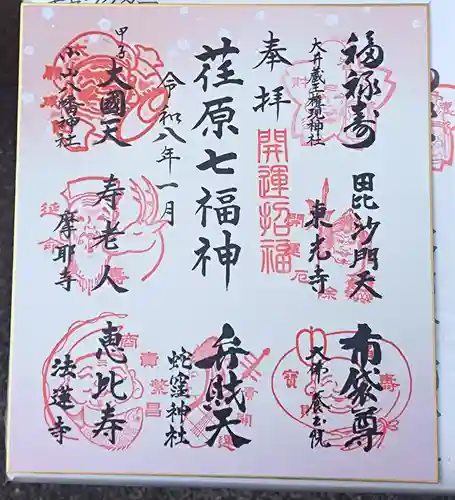 福禄寿
大井蔵王権現神社
毘沙門天
東光寺
布袋尊
大佛 養玉院
奉拝
開運招福
荏原七福神
令和八年一月
弁財天
蛇窪神社
甲子
大國天
小山八幡神社
寿老人
摩耶寺
恵比寿
法蓮寺